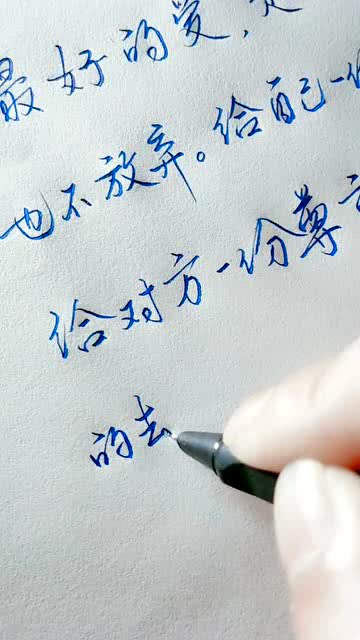 最好的爱,是
也不放弃。给自己一份
给对方一份尊
的去